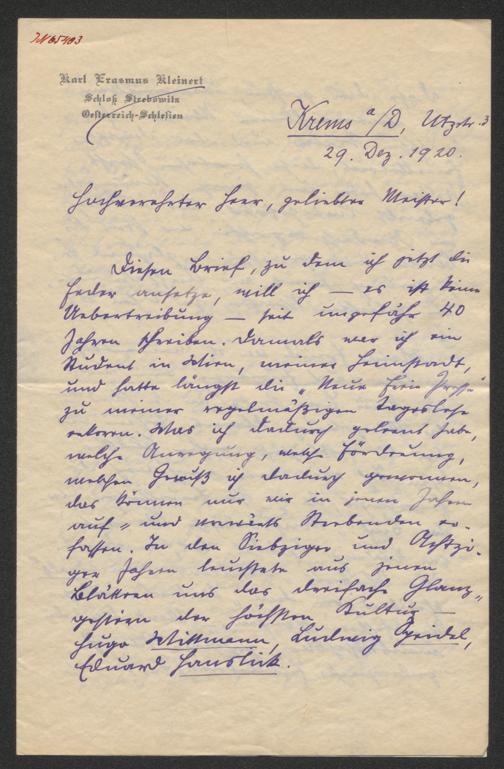 JN 65403
Karl Erasmus Kleinert
Schloß Strebowitz
Oesterreich-Schlesien
Krems a/D, Utzstr. 3
29. Dez. 1920.
Hochverehrter Herr, geliebter Meister!
Diesen Brief, zu dem ich jetzt die
Feder ansetze, will ich — es ist keine
Uebertreibung — seit ungefähr 40
Jahren schreiben. Damals war ich ein
Student in Wien, meiner Heimstadt,
und hatte längst die „Neue Freie Presse"
zu meiner regelmäßigen Tageslese
erkoren. Was ich dadurch gelernt habe,
welche Anregung, welche Förderung,
welchen Genuß ich dadurch gewonnen,
das können nur wir in jenen Jahren
auf- und vorwärts Strebenden er-
fassen. In den Siebziger und Achtzi-
ger Jahren leuchtete aus jenen
Blättern uns das dreifache Glanz-
gestirn der höchsten Kultur —
Hugo Wittmann, Ludwig Speidel,
Eduard Hanslick.